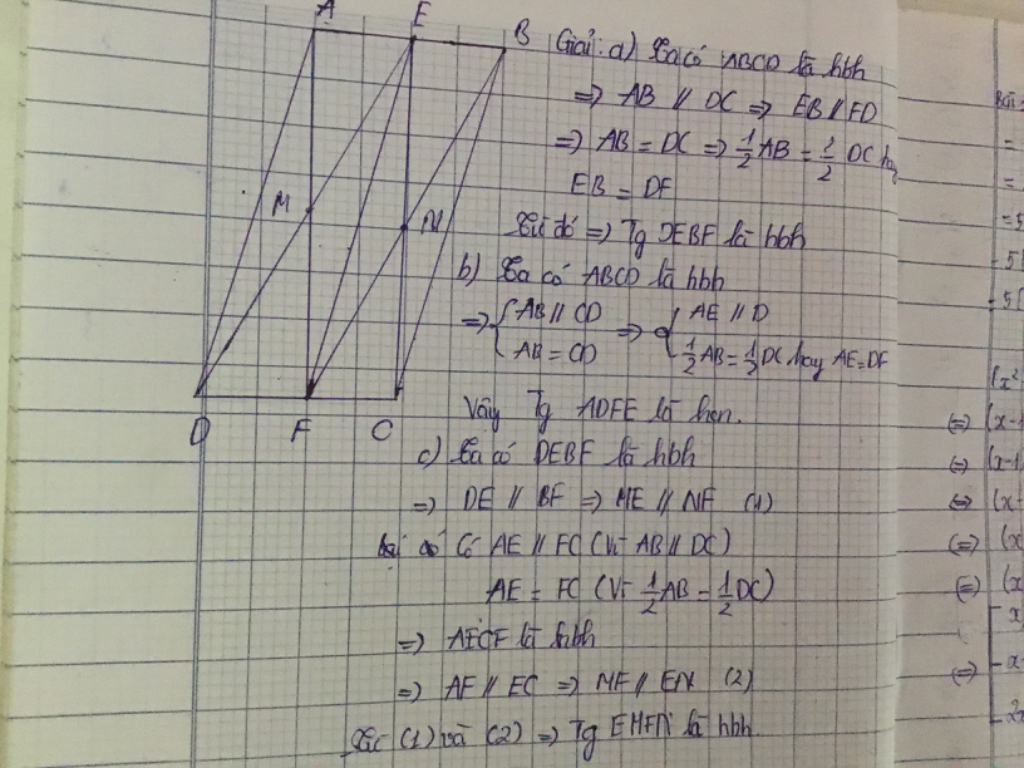 A E B
M N
D F C
Giải: a) Ta có ABCD là hbh
=> AB // DC => EB // FD
=> AB = DC => 1/2 AB = 1/2 DC hay
EB = DF
Từ đó => Tg DEBF là hbh
b) Ta có ABCD là hbh
=> { AB // CD => { AE // D
AB = CD 1/2 AB = 1/2 DC hay AE = DF
Vậy Tg ADFE là
c) Ta có DEBF là hbh
=> DE // BF => ME // NF (1)
có AE // FC (Vì AB // DC)
AE = FC (Vì 1/2 AB = 1/2 DC)
=> AECF là hbh
=> AF // EC => MF // EN (2)
Từ (1) và (2) => Tg EMFN là hbh.
=
=
(=) (x-1
(=) (x-1
(=) (x-
(=) (x
(=) (x
(=)